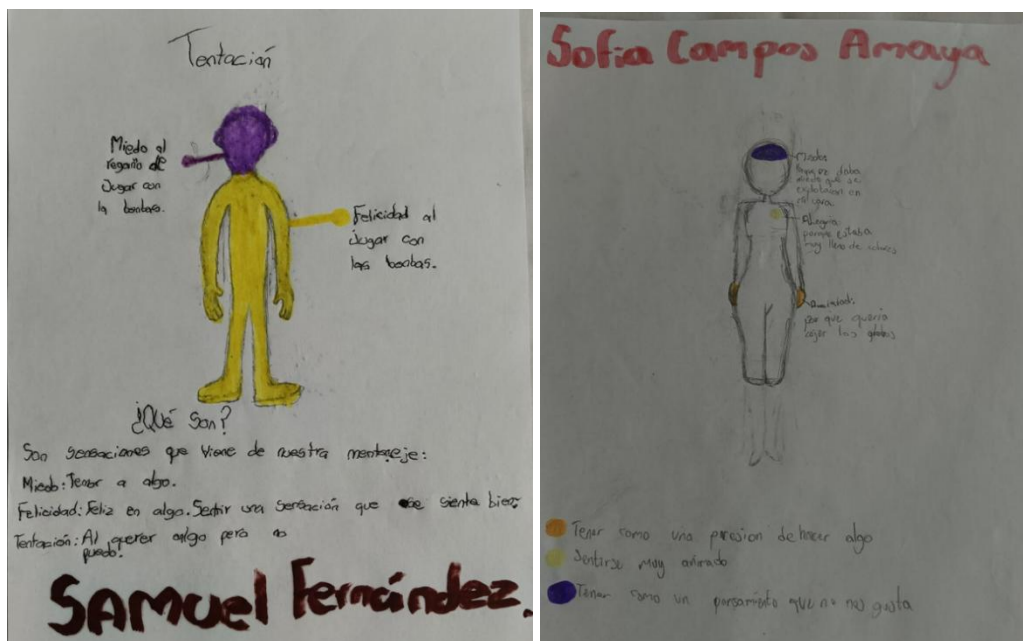 Tentación
Miedo al
regaño de
Jugar con
la bombas.
Felicidad al
Jugar con
las bombas.
¿Qué son?
Son sensaciones que viene de nuestra
Miedo: Temor a algo.
Felicidad: Feliz en algo. Sentir una sensación que se sienta bien
Tentación: Al querer algo pero no
puedo.
SAMUEL Fernández.
Sofia Campos Amaya
Miedo
daba
miedo que se
explotaran en
mi cara
Alegria
porque estaba
muy lleno de colores
por que queria
los globos
Tener como una presion de hacer algo
Sentirse muy animado
Tener como un pensamiento que no nos gusta